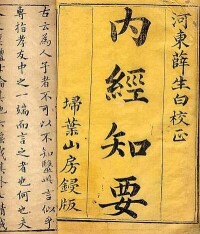 河東薛生白校正
內經知要
埽葉山房鋟版
古云為人子者不可以不知醫此言似乎
專指孝友中之一端而言之者也何也夫